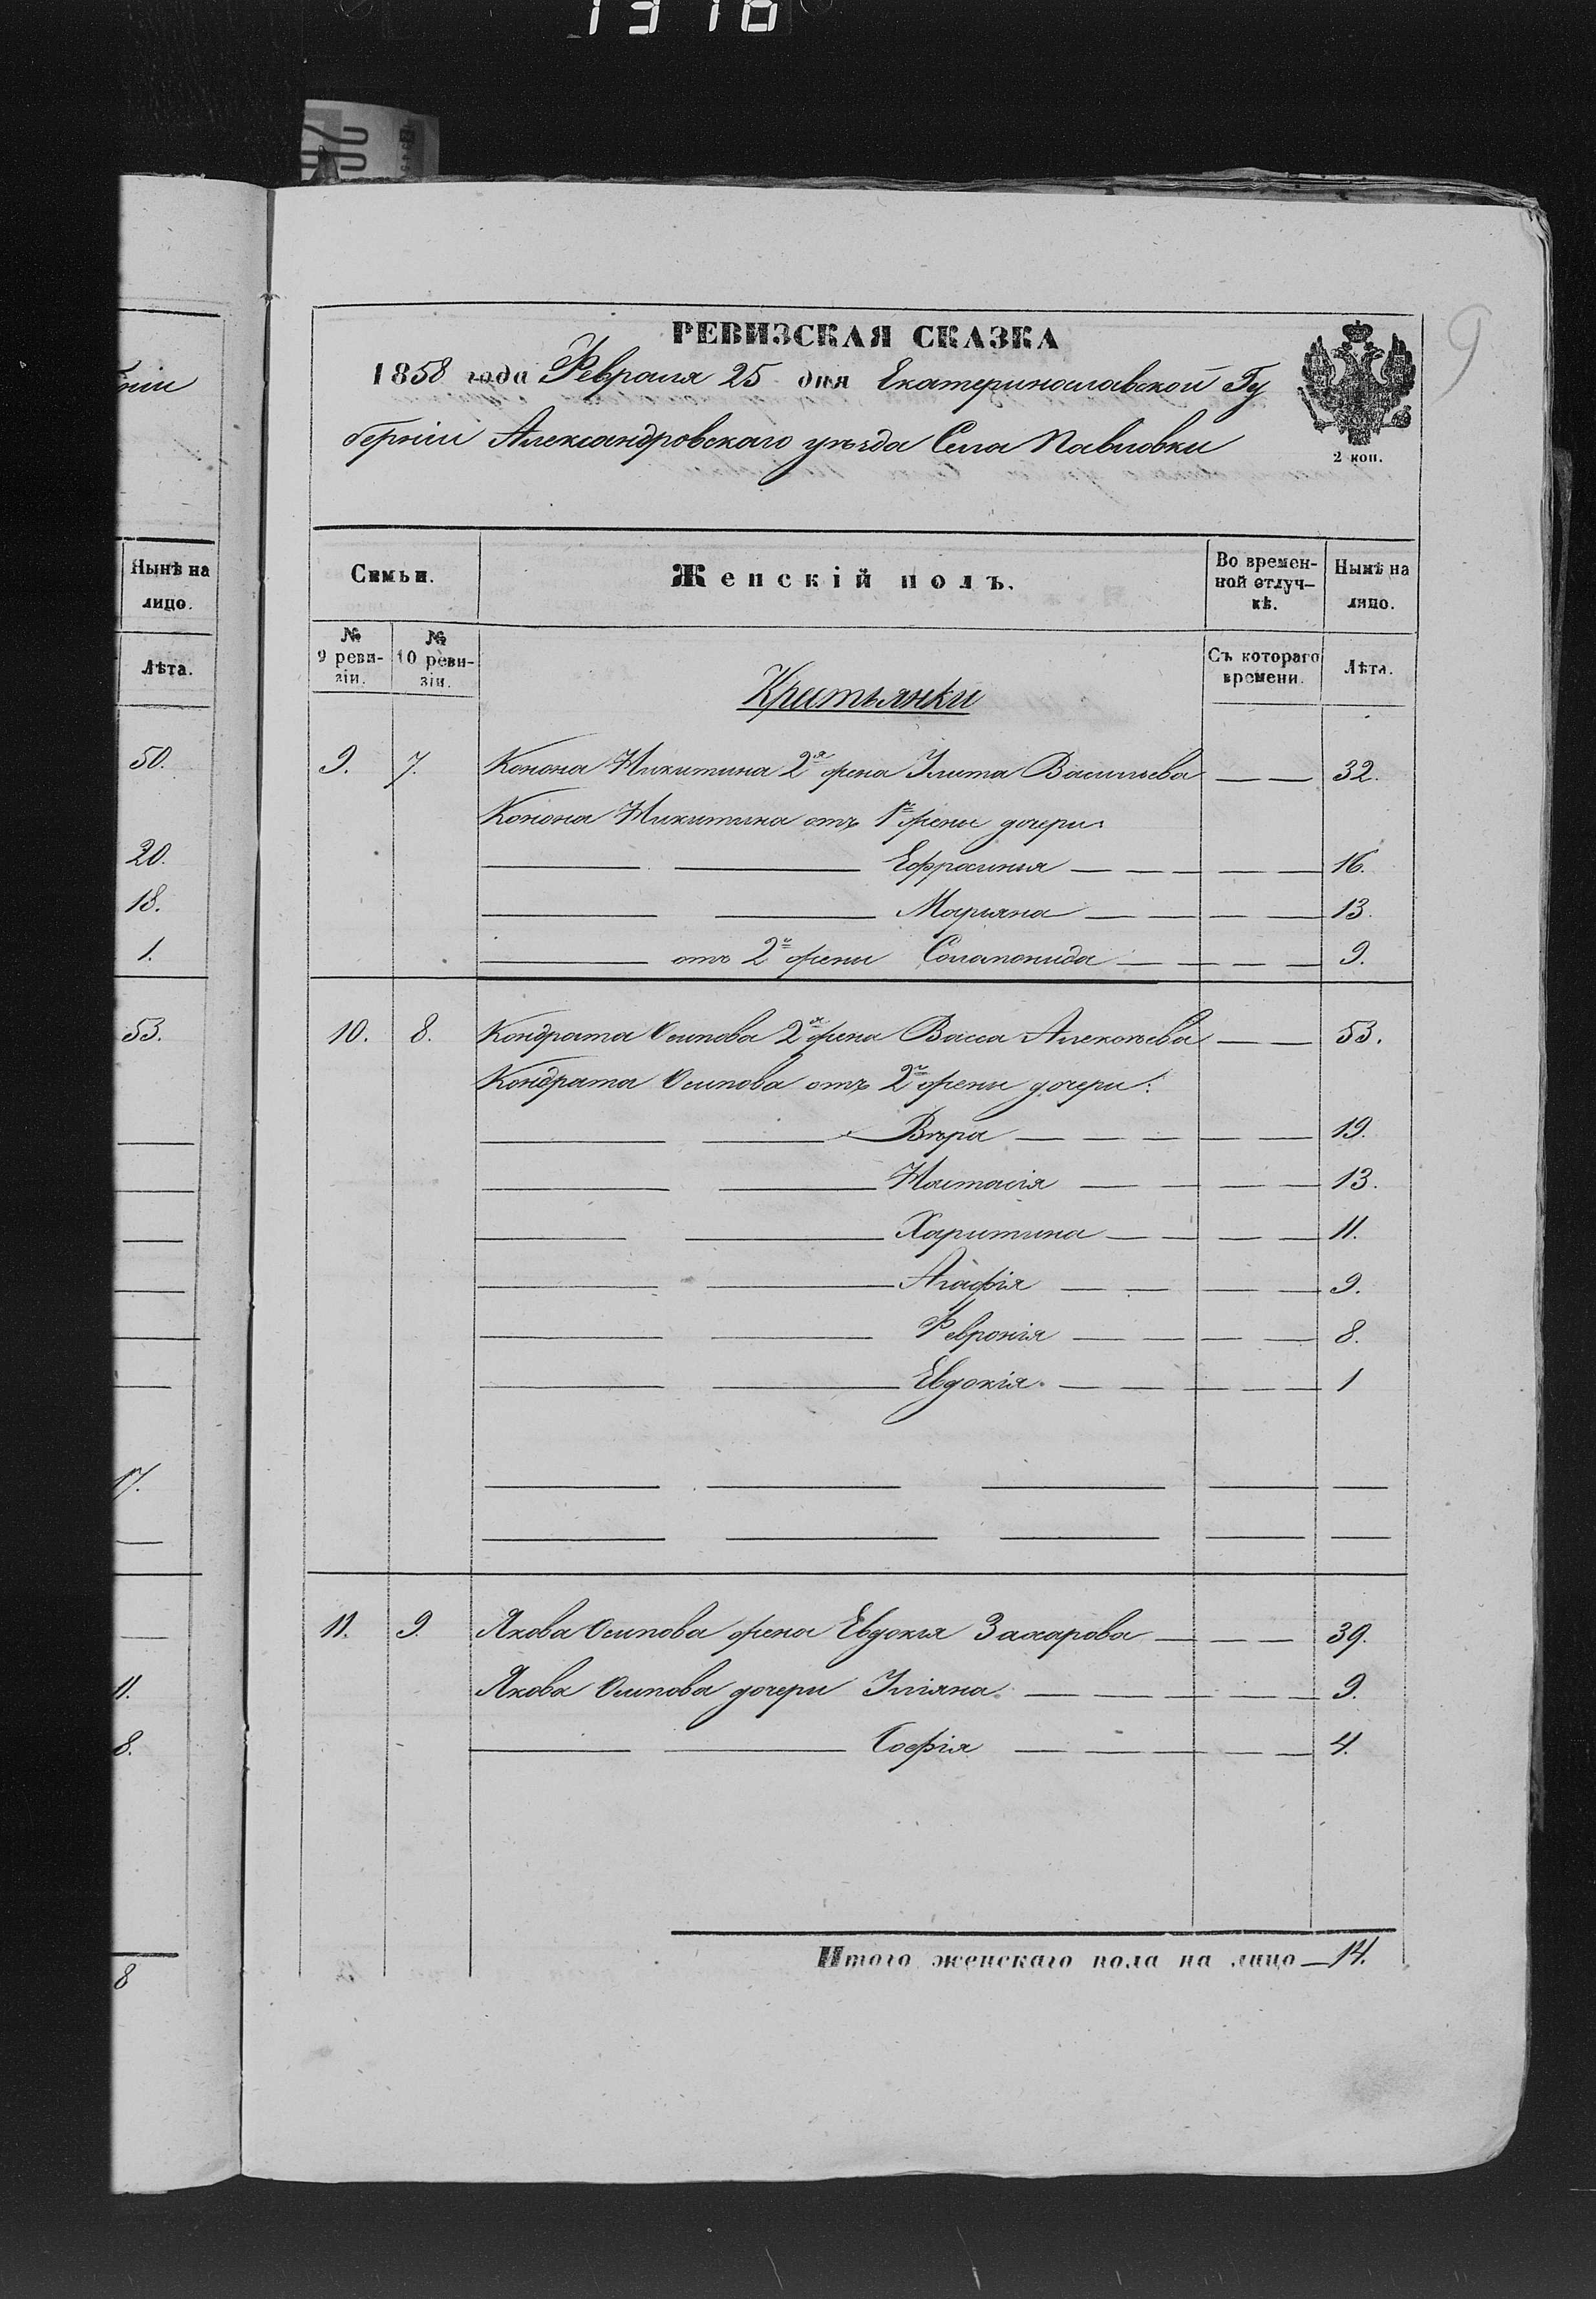 1316
9
РЕВИЗСКАЯ СКАЗКА
1858 года Февраля 25 дня Екатеринославской Гу
берніи Александровскаго уѣзда Села Павловки
2 коп.
ніи
Нынѣ на
лицо.
Лѣта.
50.
20.
18.
1.
53.
17.
11.
8.
8
Семьи.
Женскій полъ.
Во времен-
ной отлуч-
кѣ.
Нынѣ на
лицо.
№
9 реви-
зіи.
№
10 реви-
зіи.
Съ котораго
времени.
Лѣта.
Крестьянки
9. 7. Конона Никитина 2я жена Улита Васильева — — 32.
Конона Никитина отъ 1й жены дочери:
Ефросинья — — — — — 16.
Марьяна — — — — 13.
отъ 2й жены Соломонида — — — — 9.
10. 8. Кондрата Осипова 2я жена Васса Алексѣева — — 53.
Кондрата Осипова отъ 2й жены дочери:
Вѣра — — — — — 19.
Настасія — — — — — 13.
Харитина — — — — 11.
Агафія — — — — 9.
Февронія — — — — — 8.
Евдокія — — — — — 1
11. 9. Якова Осипова жена Евдокія Захарова — — — 39.
Якова Осипова дочери Уліяна — — — — — 9.
Софія — — — — — 4.
Итого женскаго пола на лицо — 14.